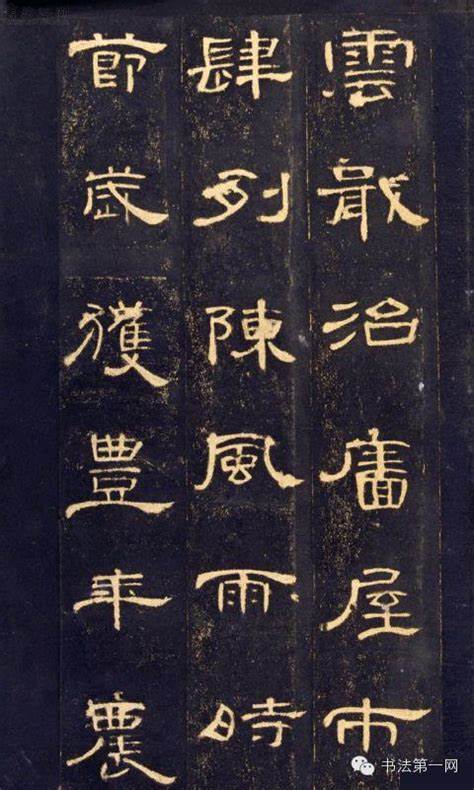 雲戢治廧屋市
肆列陳風雨時
節歲獲豊年農
书法第一网